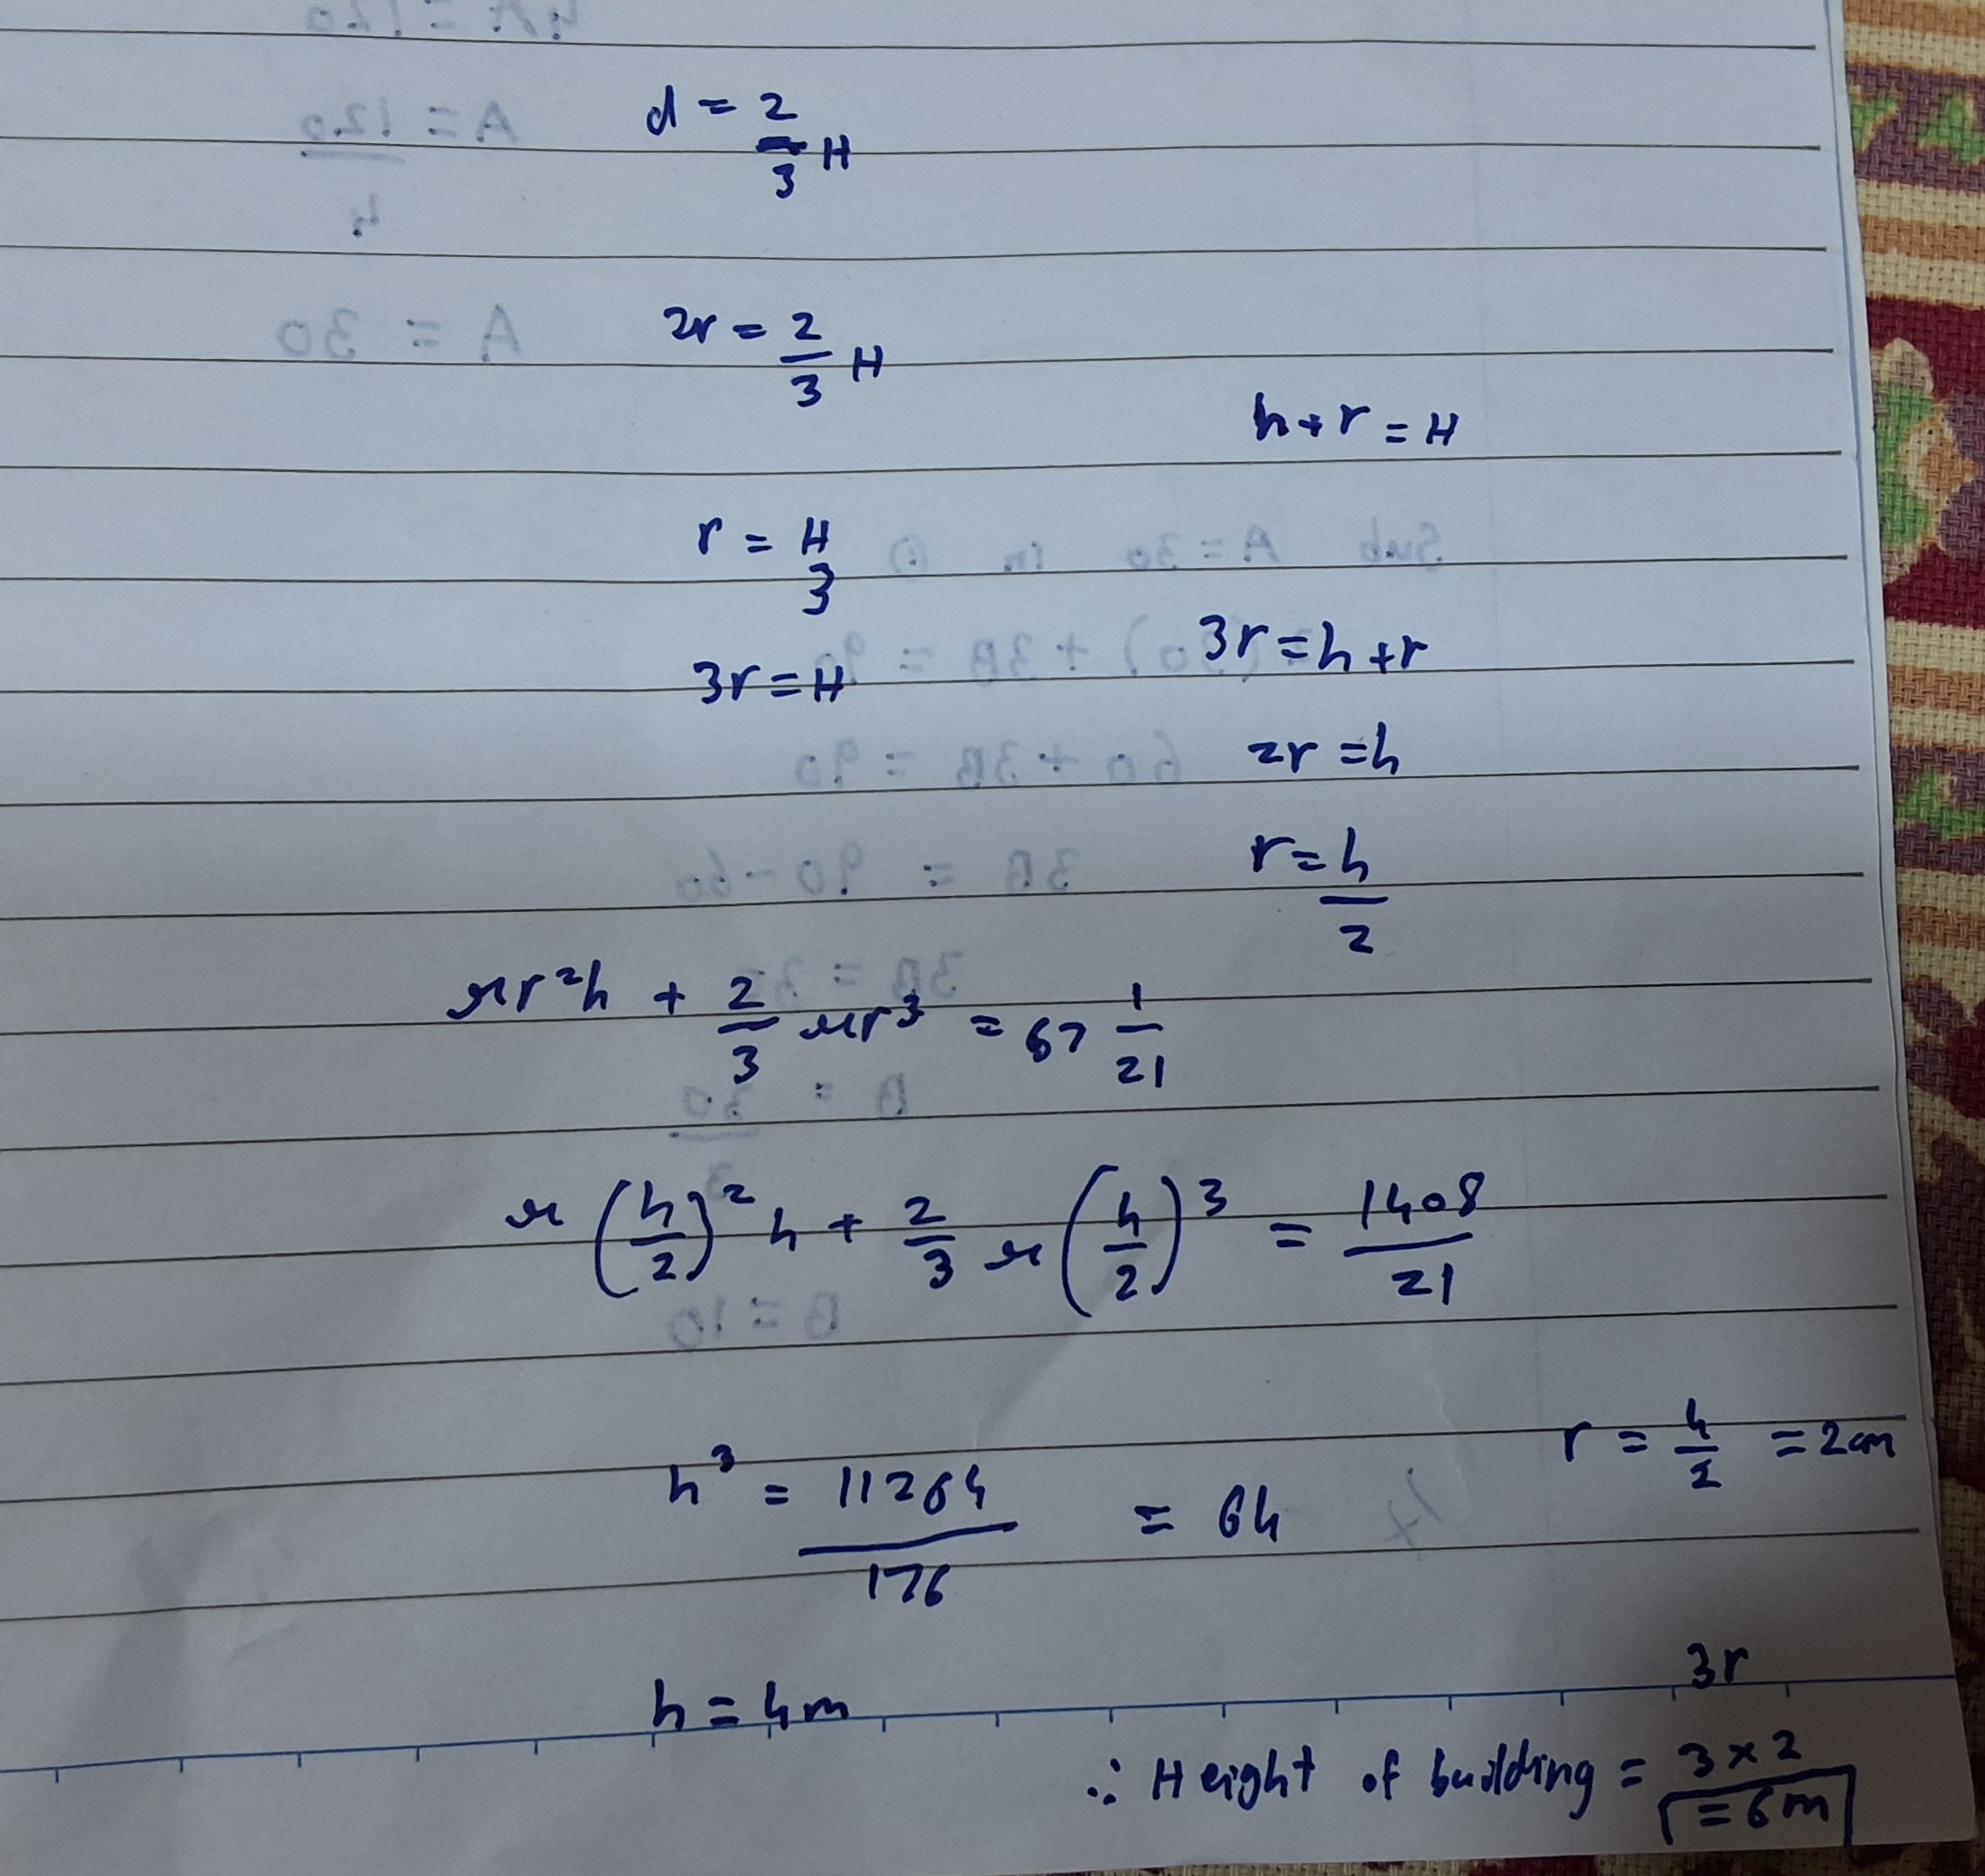 d = 2/3 H
2r = 2/3 H
h+r = H
r = H/3
3r = h+r
3r = H
2r = h
r = h/2
πr²h + 2/3 πr³ = 67 1/21
π (h/2)² h + 2/3 π (h/2)³ = 1408/21
r = h/2 = 2cm
h³ = 11264/176 = 64
3r
h = 4m
∴ Height of building = 3×2
= 6m